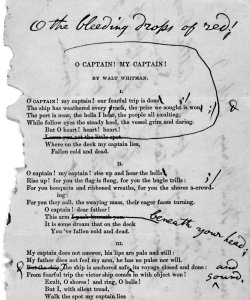 O the bleeding drops of red!
O CAPTAIN! MY CAPTAIN!
BY WALT WHITMAN.
I.
O CAPTAIN! my captain! our fearful trip is done;
The ship has weathered every rack, the prize we sought is won;
The port is near, the bells I hear, the people all exulting,
While follow eyes the steady keel, the vessel grim and daring.
But O heart! heart! heart!
Leave you not the little spot
Where on the deck my captain lies,
Fallen cold and dead.
II.
O captain! my captain! rise up and hear the bells;
Rise up! for you the flag is flung, for you the bugle trills:
For you bouquets and ribboned wreaths, for you the shores a-crowd-
ing:
For you they call, the swaying mass, their eager faces turning.
O captain! dear father!
This arm I push beneath you
beneath your head;
It is some dream that on the deck
You've fallen cold and dead.
III.
My captain does not answer, his lips are pale and still:
My father does not feel my arm, he has no pulse nor will.
But the ship, The ship is anchored safe, its voyage closed and done:
and sound,
From fearful trip the victor ship comes in with object won!
Exult, O shores! and ring, O bells!
But I, with silent tread,
Walk the spot my captain lies